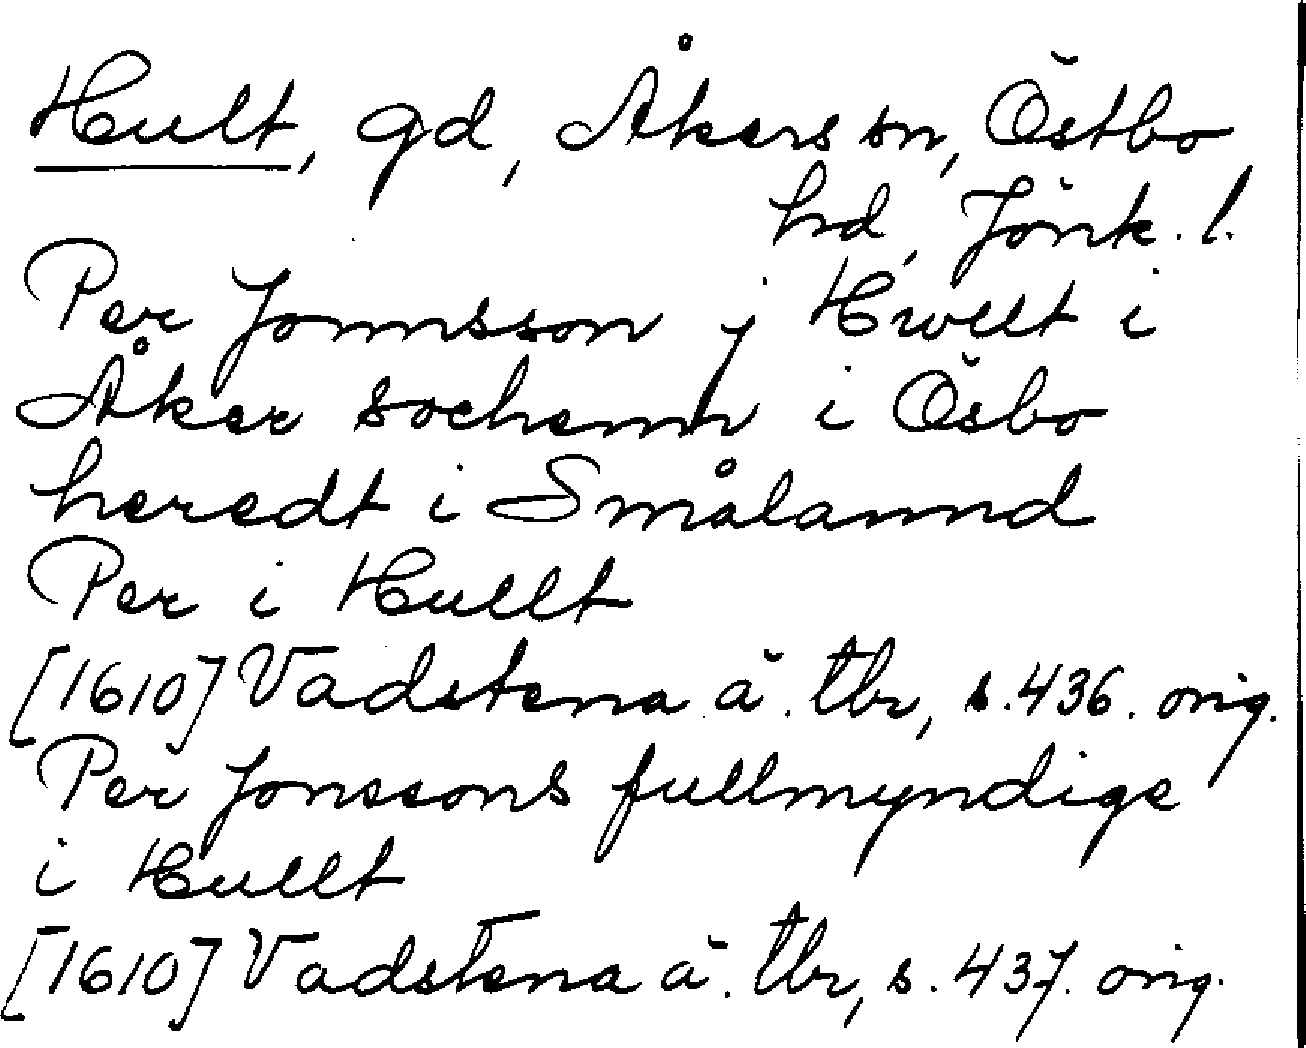 Hult, gd, Åkers sn, Östbo
hd, Jönk. l.
Per Jonnsson j Hwllt i
Åker sochenn i Ösbo
heredt i Smålannd
Per i Hullt
[1610] Vadstena ä. tbr, s. 436. orig.
Per Jonssons fullmyndige
i Hullt
[1610] Vadstena ä. tbr, s. 437. orig.